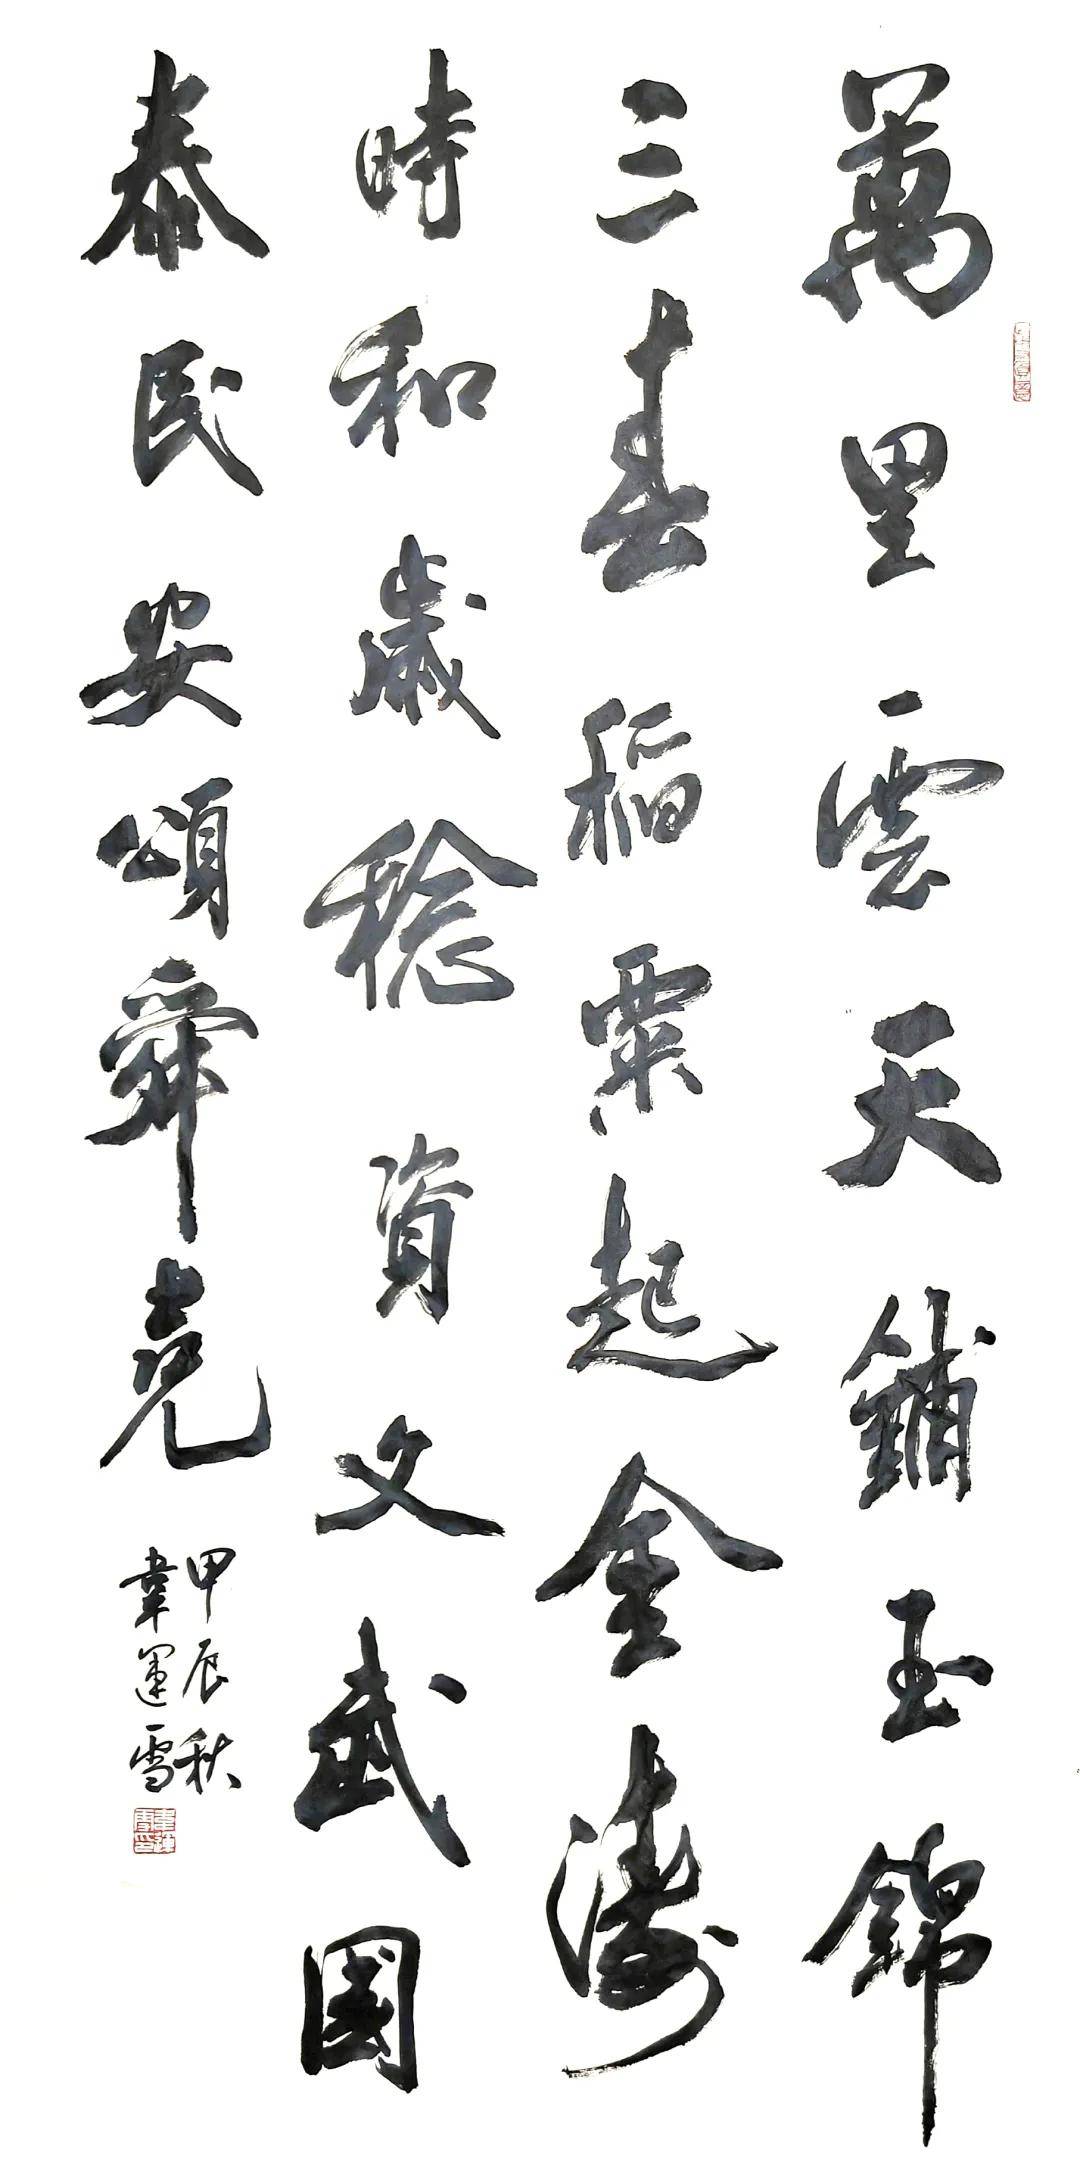 萬里雲天鋪玉錦
三春稻粟起金濤
時和歲稔資文武國
泰民安頌舜堯
甲辰秋
韋運雪